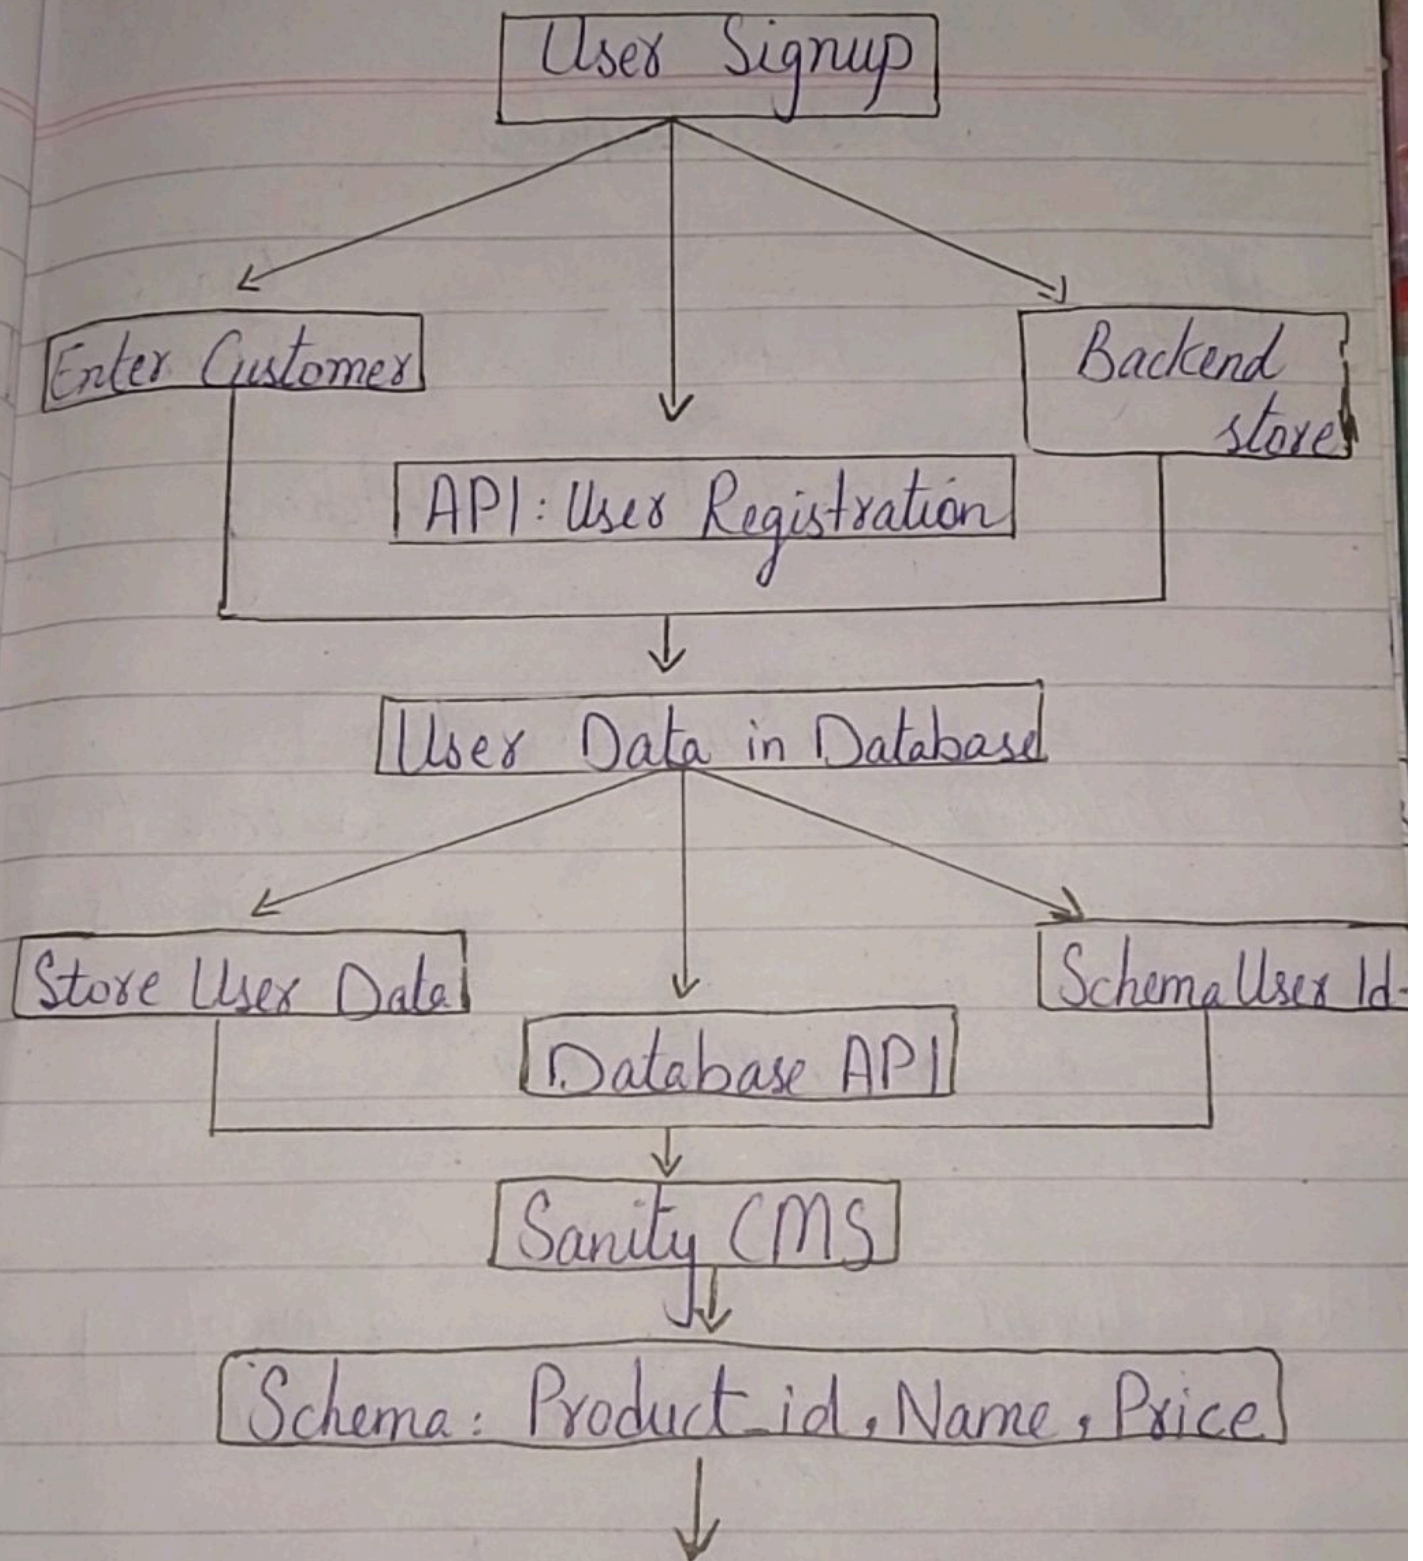 User Signup
Enter Customer
Backend
store
API: User Registration
User Data in Database
Store User Data
Schema User Id
Database API
Sanity CMS
Schema: Product_id, Name, Price